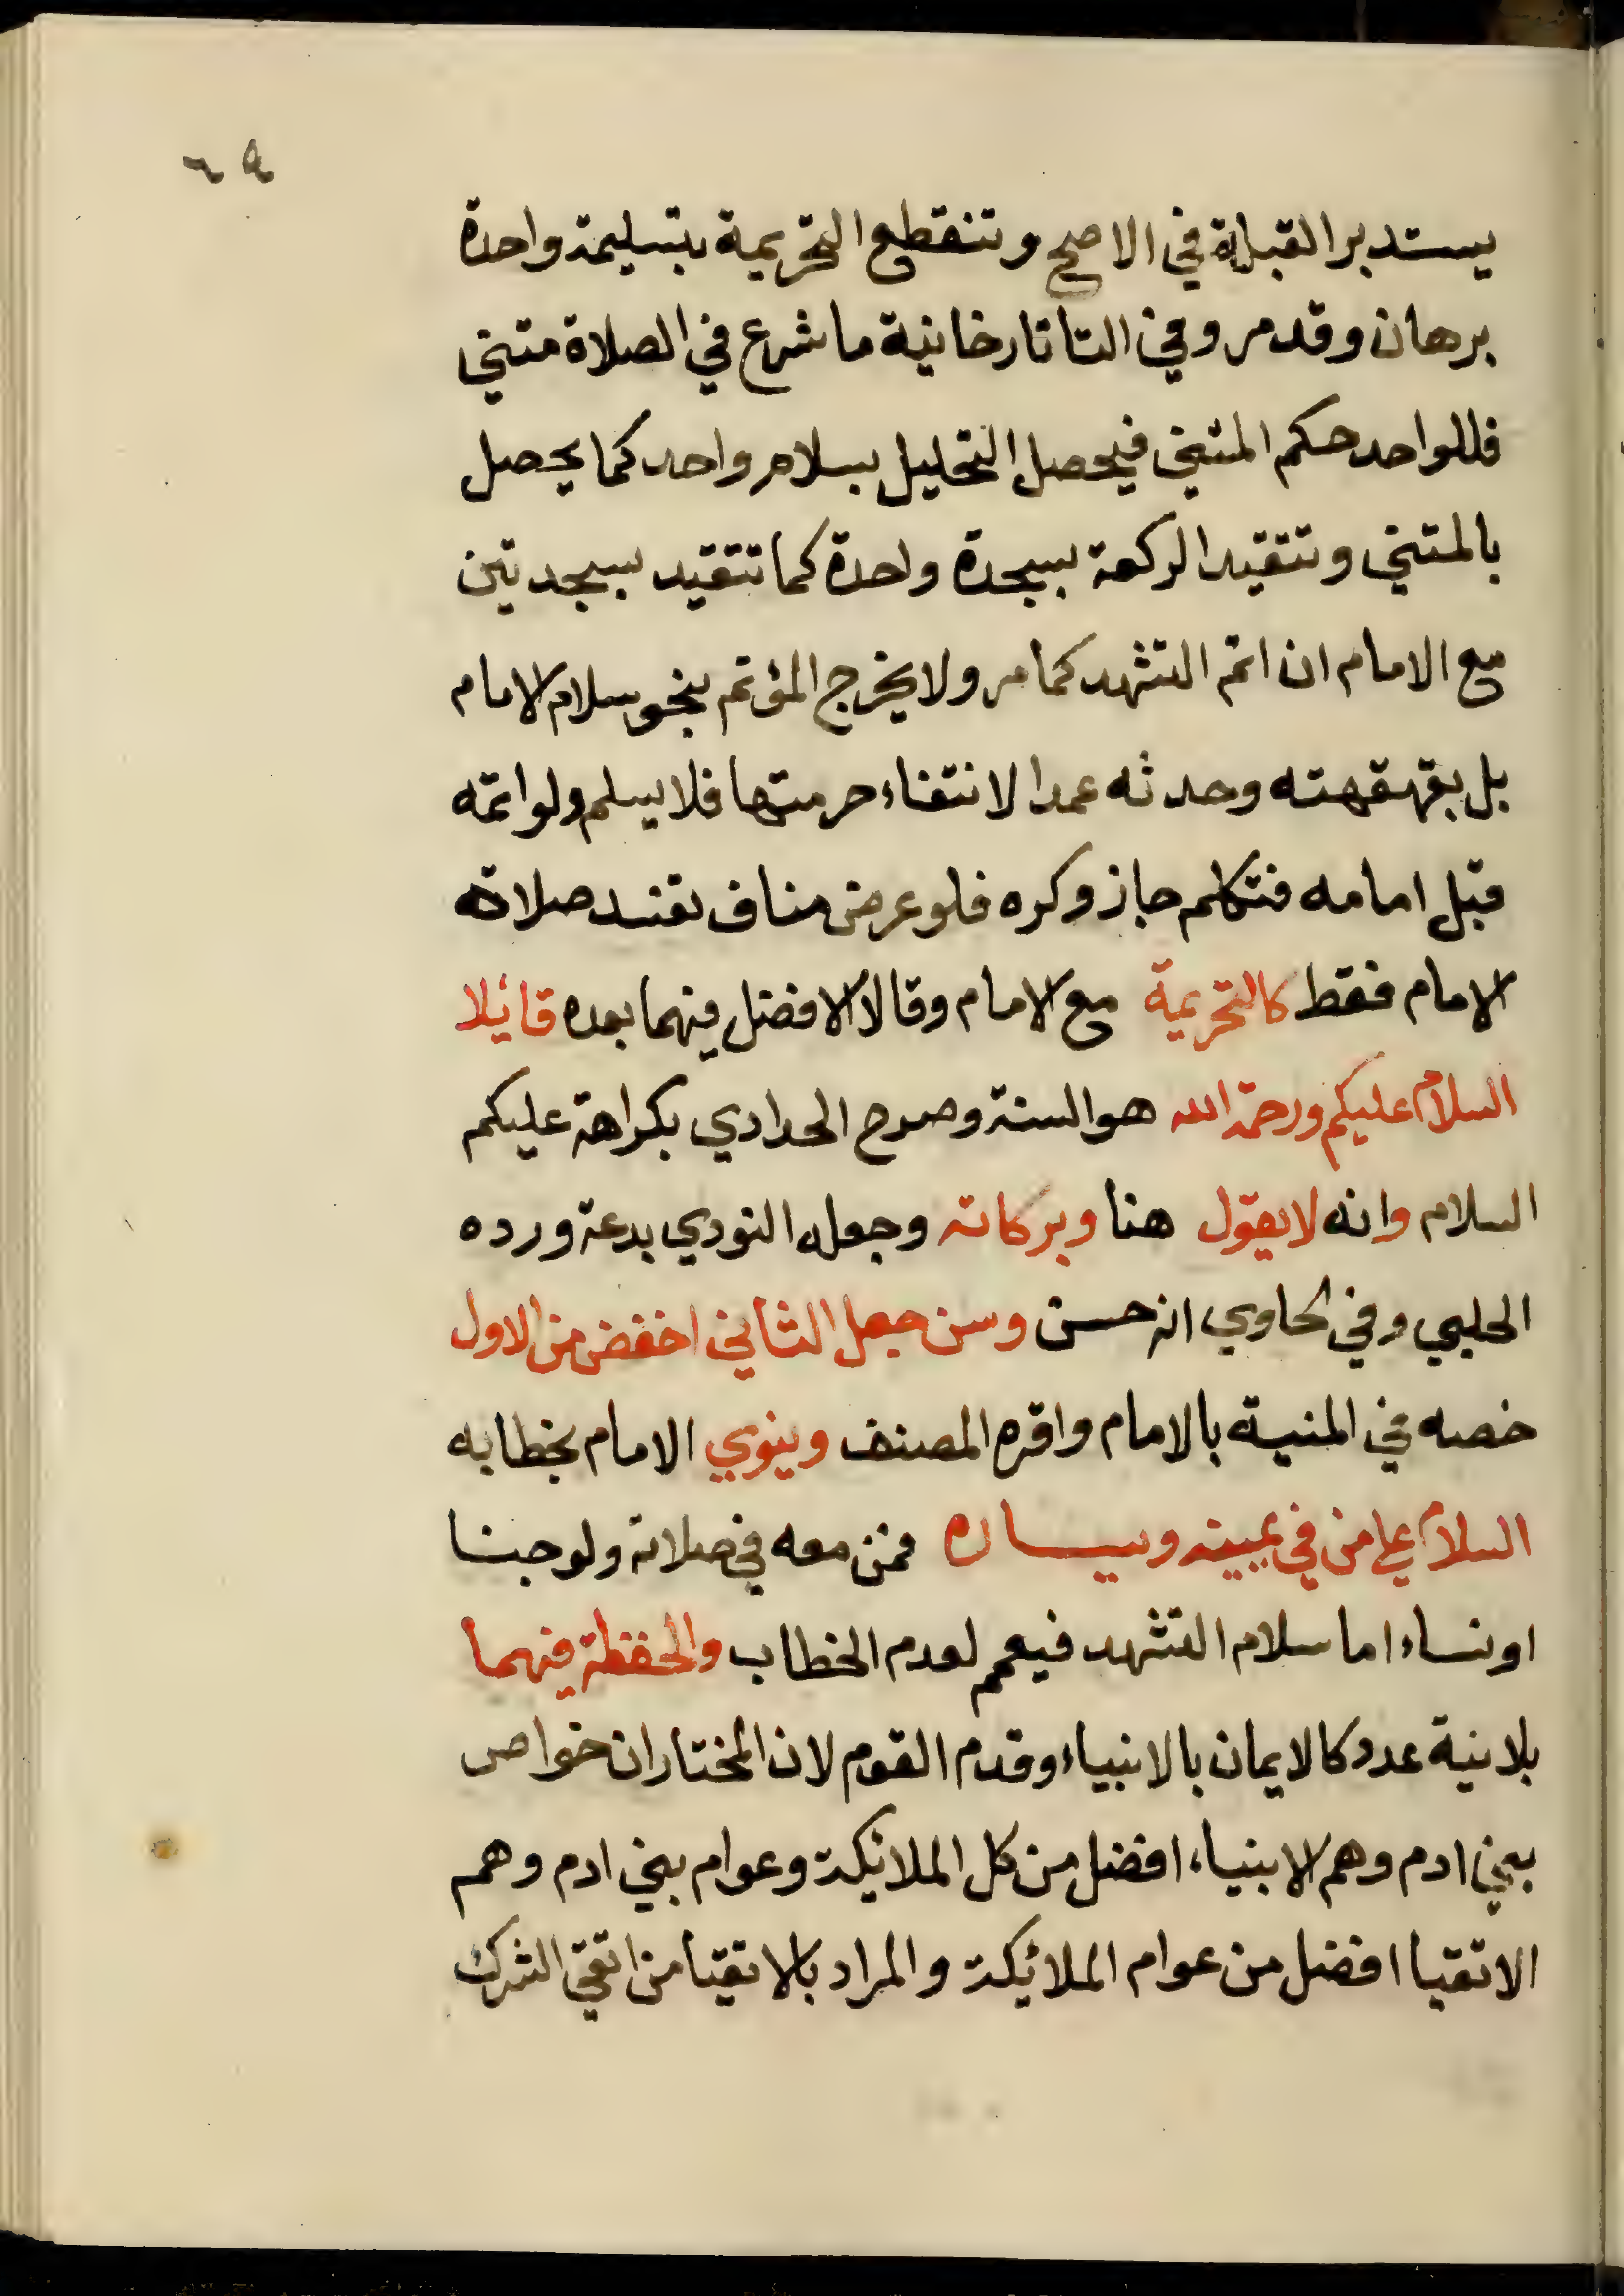 ٦٩
يستدبر القبلة في الاصح وتنقطع التحريمة بتسليمة واحدة
برهان وقد مر وفي التاتارخانية ما شرع في الصلاة مثنى
فللواحد حكم المثنى فيحصل التحليل بسلام واحد كما يحصل
بالمثنى وتتقيد الركعة بسجدة واحدة كما تتقيد بسجدتين
مع الامام ان اتم التشهد كما مر ولا يخرج المؤتم بنحو سلام الامام
بل بقهقهته وحدثه عمدا لانتفاء حرمتها فلا يسلم ولو اتمه
قبل امامه فتكلم جاز وكره فلو عرض مناف تفسد صلاة
الامام فقط كالتحريمة مع الامام وقالا الافضل فيهما بعده قائلا
السلام عليكم ورحمة الله هو السنة وصرح الحدادي بكراهة عليكم
السلام وانه لا يقول هنا وبركاته وجعله النووي بدعة ورده
الحلبي وفي الحاوي انه حسن وسن جعل الثاني اخفض من الاول
خصه في المنية بالامام واقره المصنف وينوي الامام بخطابه
السلام على من في يمينه ويساره فمن معه في صلاته ولو جنا
او نساء اما سلام التشهد فيعم لعدم الخطاب والحفظة فيهما
بلا نية عدد كالايمان بالانبياء وقدم القوم لان المختار ان خواص
بني ادم وهم الانبياء افضل من كل الملائكة وعوام بني ادم وهم
الاتقيا افضل من عوام الملائكة والمراد بالاتقيا من اتقى الشرك